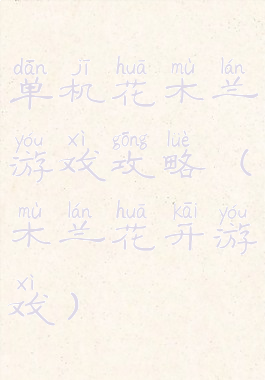 dān jī huā mù lán
单机花木兰
yóu xì gōng luè
游戏攻略（
mù lán huā kāi yóu
木兰花开游
xì
戏）